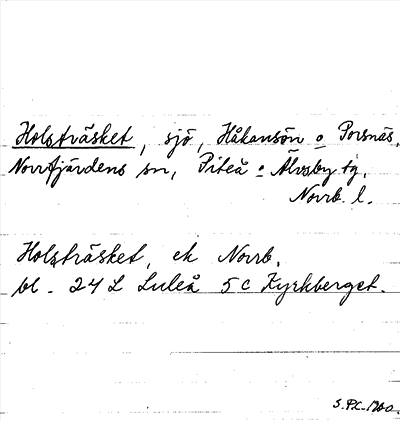 Holsträsket, sjö, Håkansön o Porsnäs,
Norrfjärdens sn, Piteå o Älvsby tg,
Norrb. l.
Holsträsket, ek Norrb.
bl. 24 L Luleå 5 c Kyrkberget.